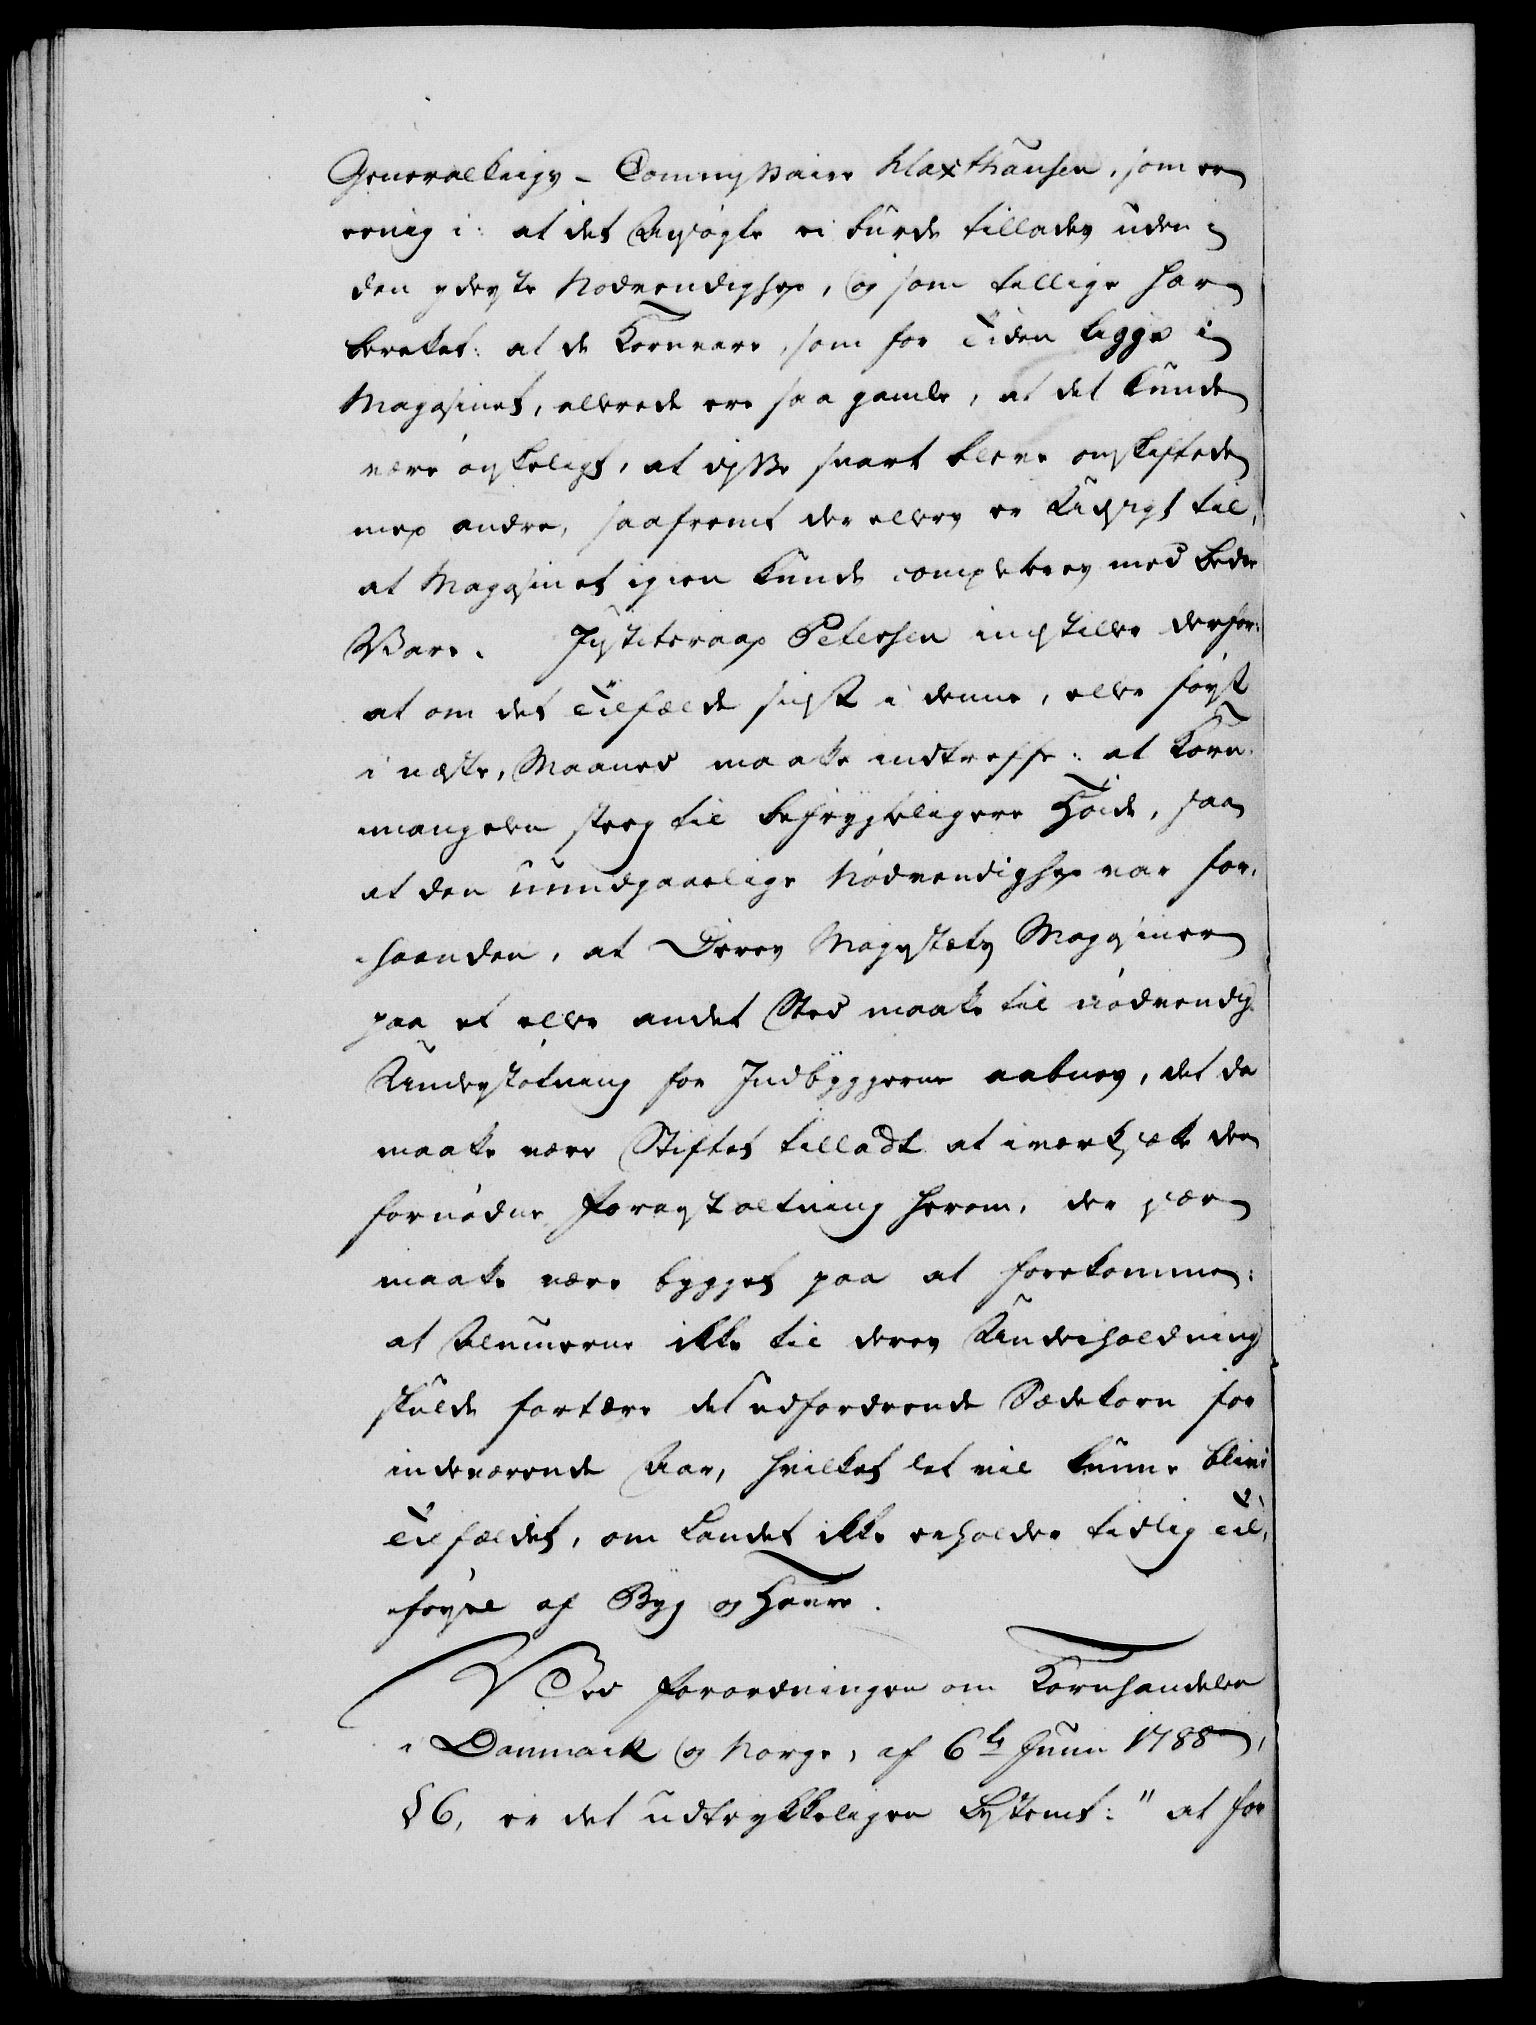 Generalkrigs-Commissaire Haxthausen, som er
eenig i: at det Ansøgte ei burde tillades uden i
den yderste Nødvendighed, og som tillige har
berettet: at de Kornvare, som for Tiden ligge i
Magasinet, allerede ere saa gamle, at det kunde
være ønskeligt, at disse snart bleve omskiftede
med andre, saafremt der ellers er Udsigt til,
at Magasinet igien kunde completeres med bedre
Vare. Justitsraad Petersen indstiller derfor:
at om det Tilfælde sidst i denne, eller først
i næste, Maaned maatte indtreffe: at Korn-
mangelen steeg til befrygteligere Høide, saa
at den uundgaaelige Nødvendighed var for-
haanden, at Deres Majestæts Magasiner
paa et eller andet Sted maatte til nødvendig
Understøtning for Indbyggerne aabnes, det da
maatte være Stiftet tilladt at iverksætte den
fornødne Foranstaltning herom, der især
maatte være bygget paa at forekomme:
at Almuerne ikke til deres Underholdning
skulde fortære det udfordrende Sædekorn for
indeværende Aar, hvilket let vil kunne blive
Tilfældet, om Landet ikke erholder tidlig Til-
førsel af Byg og Havre.
Ved Forordningen om Kornhandelen
i Danmark og Norge, af 6te Juni 1788,
§ 6, er det udtrykkeligen bestemt: "at for